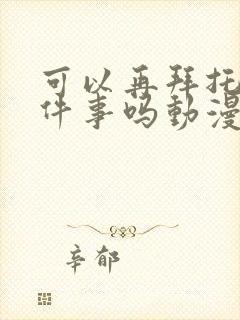 可以再拜托
件事吗動漫
辛郁